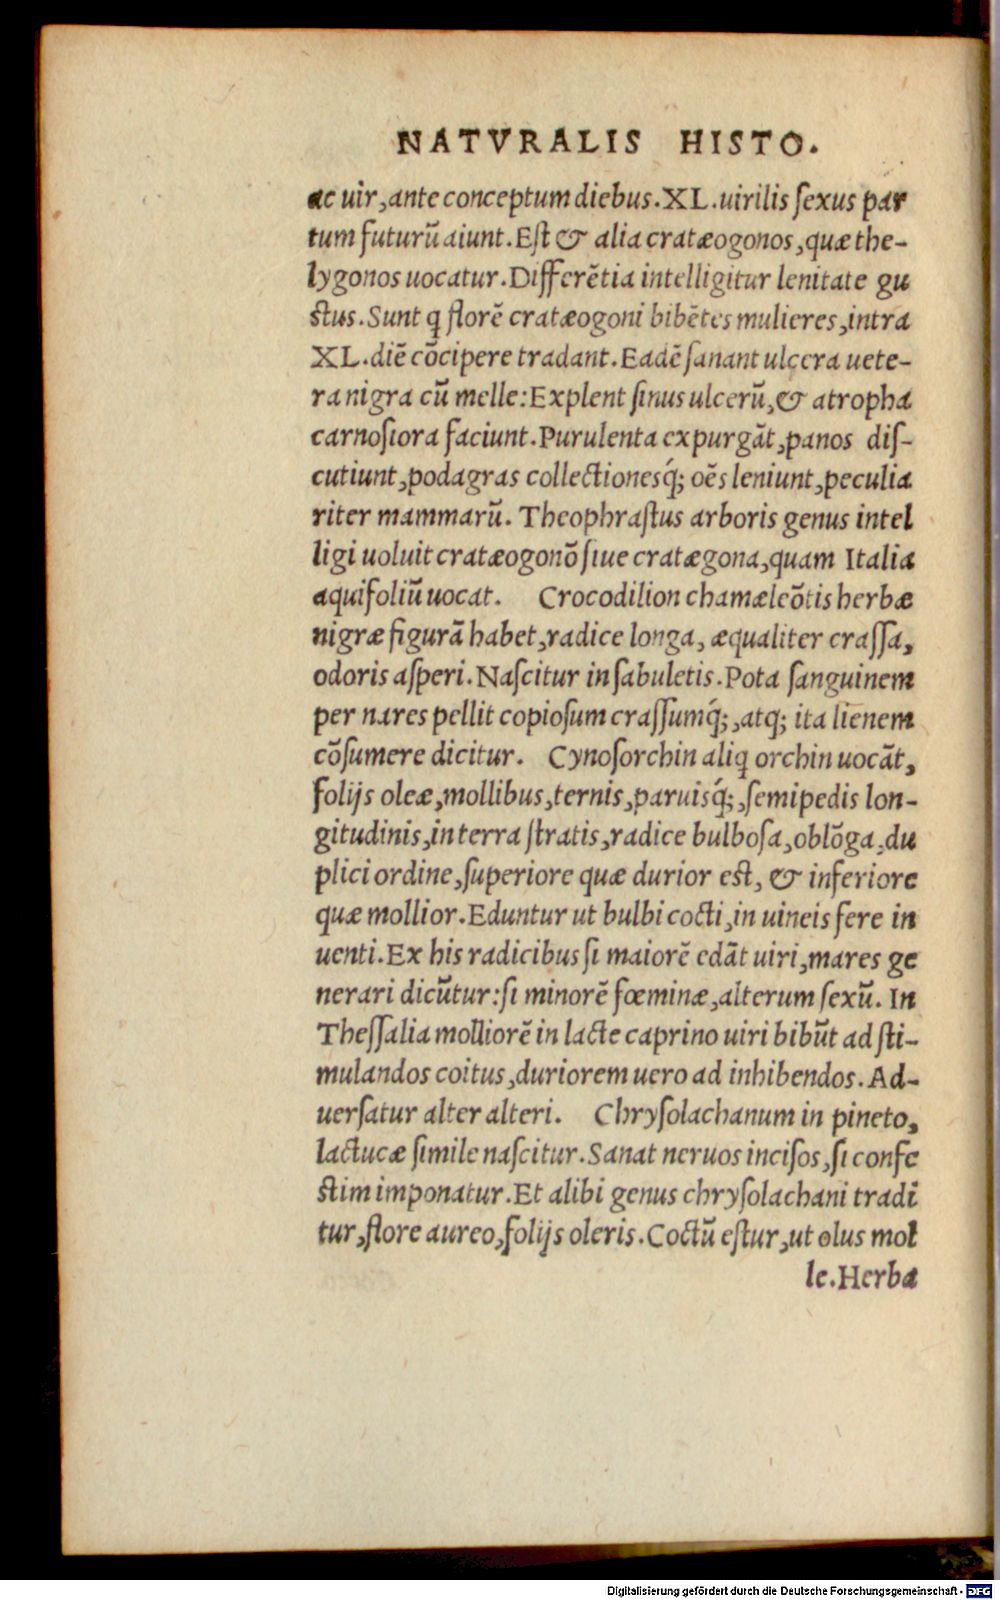 NATVRALIS HISTO.
ac uir, ante conceptum diebus. XL. uirilis ſexus par
tum futurũ aiunt. Eſt & alia cratæogonos, quæ the-
lygonos uocatur. Differẽtia intelligitur lenitate gu
ſtus. Sunt ꝗ florẽ cratæogoni bibẽtes mulieres, intra
XL. diẽ cõcipere tradant. Eadẽ ſanant ulcera uete-
ra nigra cũ melle: Explent ſinus ulcerũ, & atropha
carnoſiora faciunt. Purulenta expurgãt, panos diſ-
cutiunt, podagras collectionesq́; oẽs leniunt, peculia
riter mammarũ. Theophraſtus arboris genus intel
ligi uoluit cratæogonõ ſiue cratægona, quam Italia
aquifoliũ uocat. Crocodilion chamæleõtis herbæ
nigræ figurã habet, radice longa, æqualiter craſſa,
odoris aſperi. Naſcitur in ſabuletis. Pota ſanguinem
per nares pellit copioſum craſſumq́;, atq; ita lienem
cõſumere dicitur. Cynoſorchin aliꝗ orchin uocãt,
folijs oleæ, mollibus, ternis, paruisq́;, ſemipedis lon-
gitudinis, in terra ſtratis, radice bulboſa, oblõga, du
plici ordine, ſuperiore quæ durior eſt, & inferiore
quæ mollior. Eduntur ut bulbi cocti, in uineis fere in
uenti. Ex his radicibus ſi maiorẽ edãt uiri, mares ge
nerari dicũtur: ſi minorẽ fœminæ, alterum ſexũ. In
Theſſalia molliorẽ in lacte caprino uiri bibũt ad ſti-
mulandos coitus, duriorem uero ad inhibendos. Ad-
uerſatur alter alteri. Chryſolachanum in pineto,
lactucæ ſimile naſcitur. Sanat neruos inciſos, ſi confe
ſtim imponatur. Et alibi genus chryſolachani tradi
tur, flore aureo, folijs oleris. Coctũ eſtur, ut olus mol
le. Herba
Digitalisierung gefördert durch die Deutsche Forschungsgemeinschaft - DFG